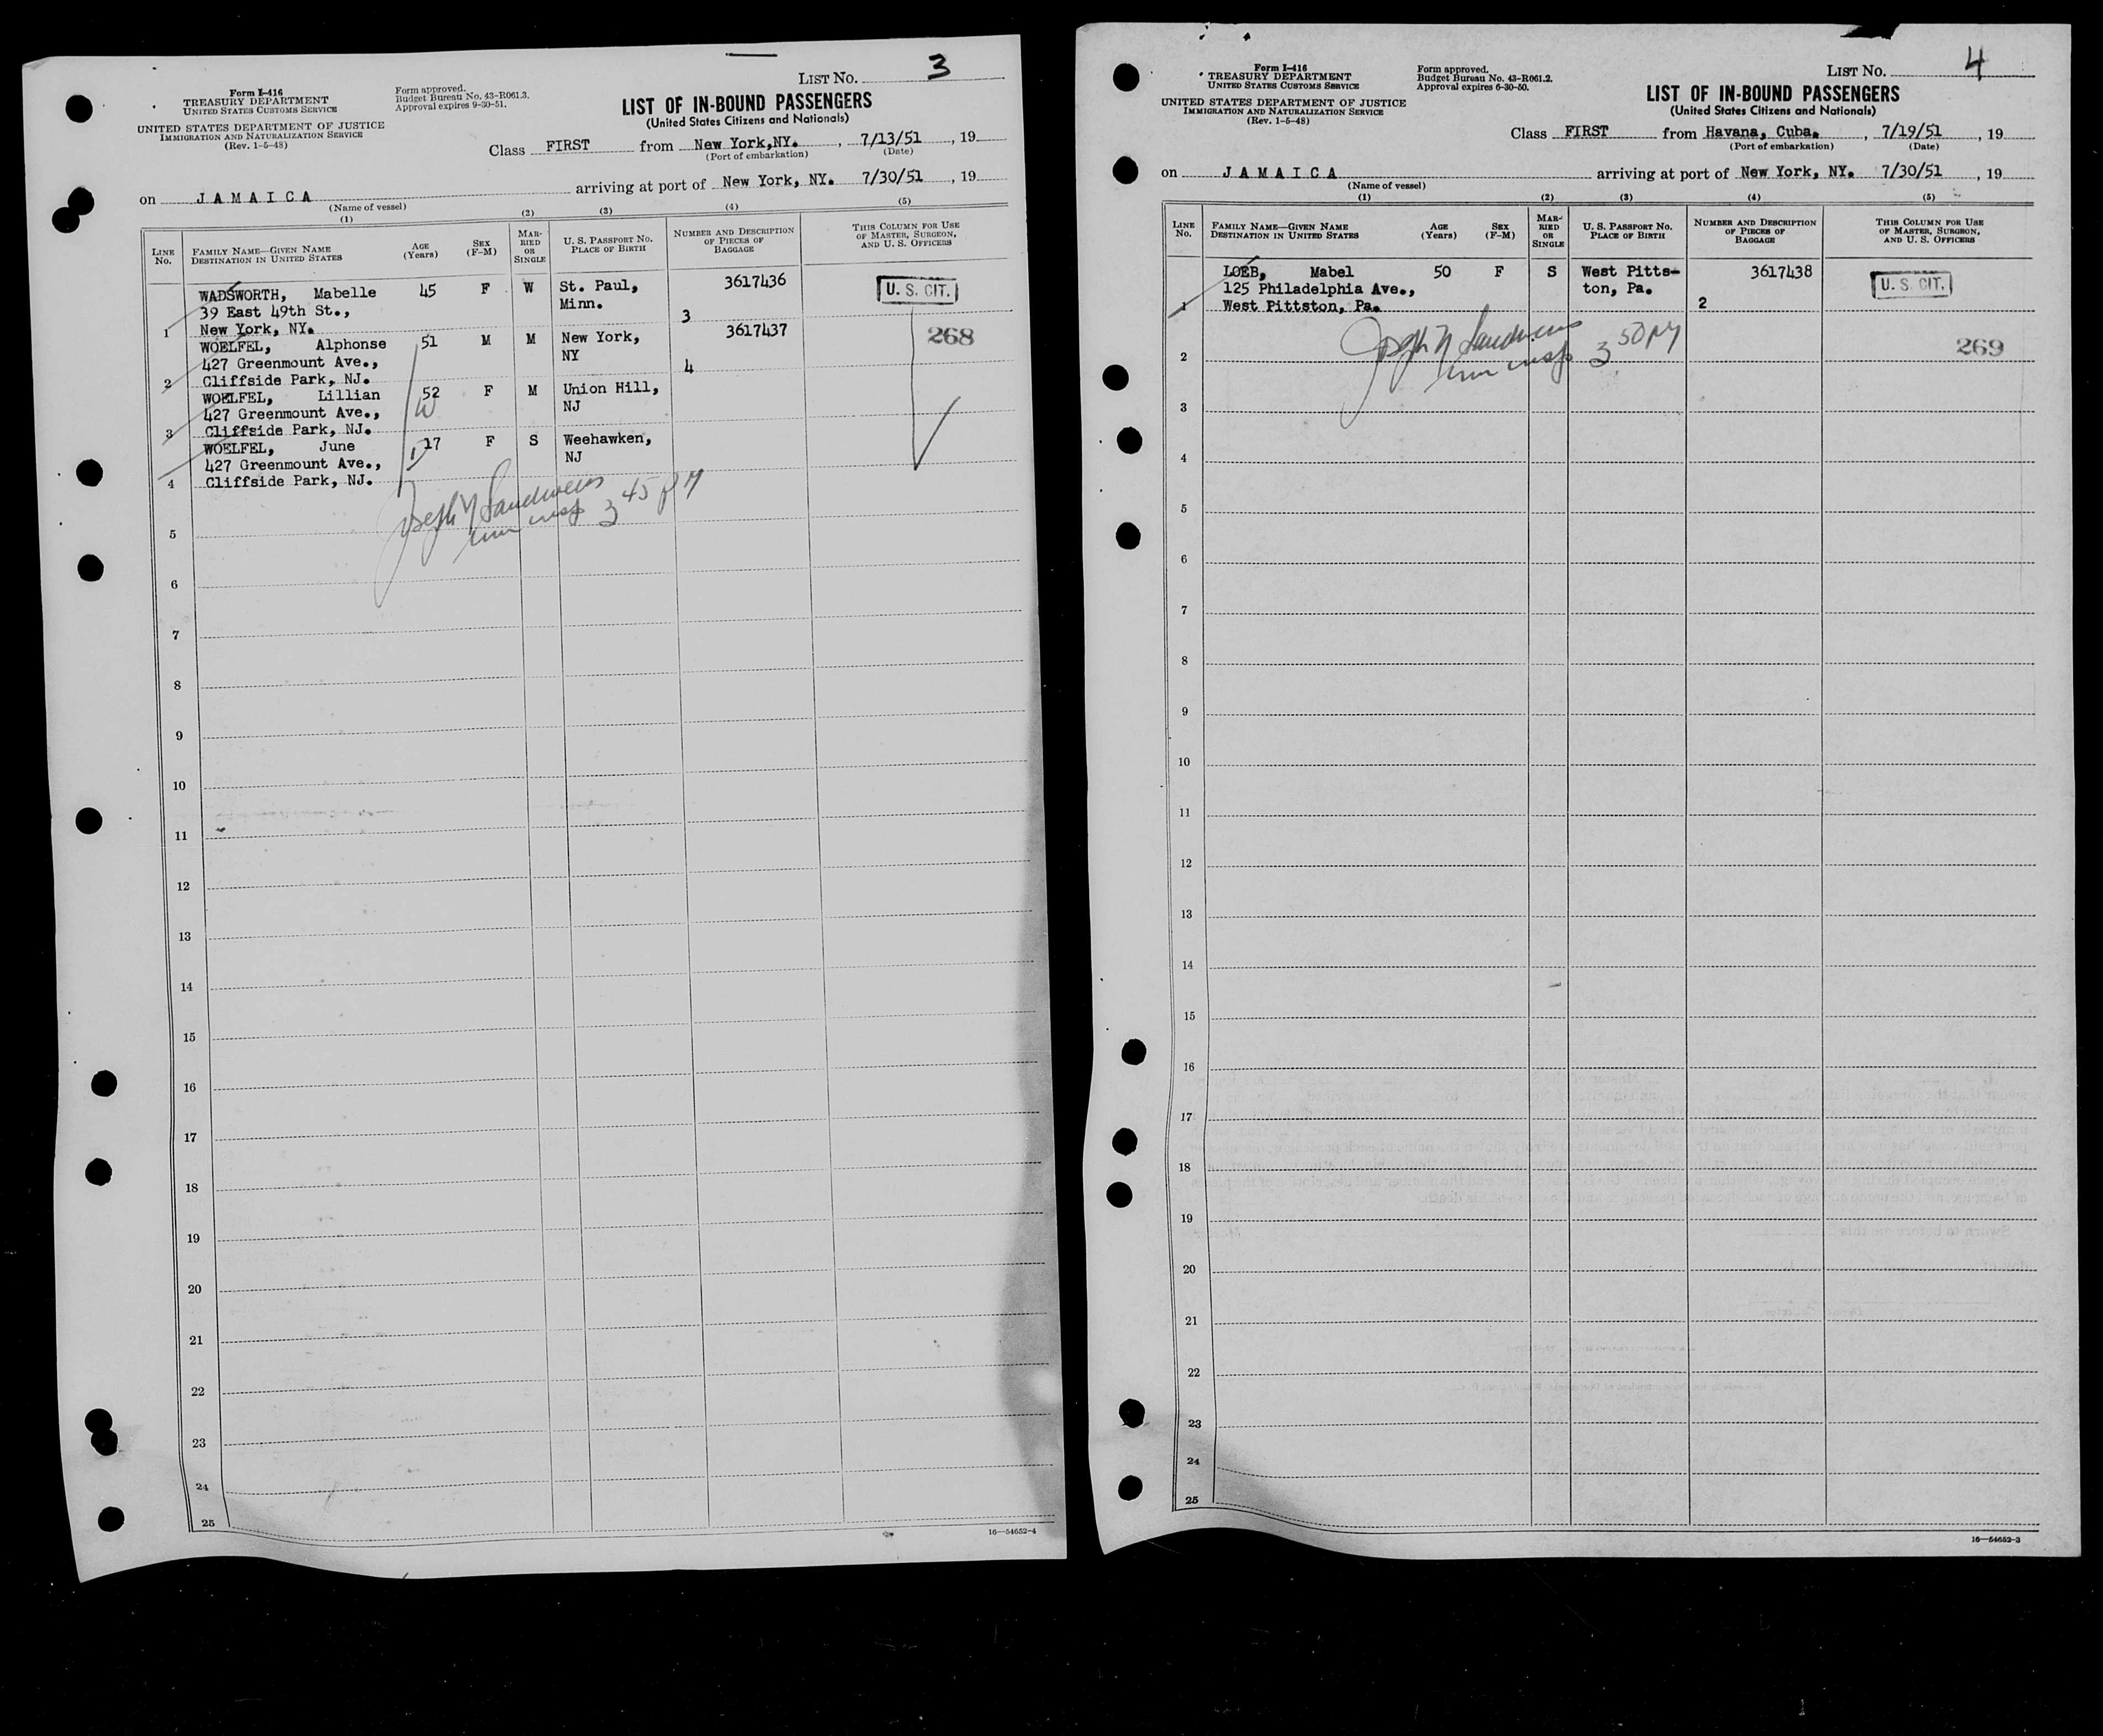 LIST NO. 3
Form I-416
TREASURY DEPARTMENT
UNITED STATES CUSTOMS SERVICE
UNITED STATES DEPARTMENT OF JUSTICE
IMMIGRATION AND NATURALIZATION SERVICE
(Rev. 1-5-48)
Form approved.
Budget Bureau No. 43-R061.3.
Approval expires 9-30-51.
LIST OF IN-BOUND PASSENGERS
(United States Citizens and Nationals)
Class FIRST from New York,NY. , 7/13/51 , 19
(Port of embarkation) (Date)
on JAMAICA arriving at port of New York, NY. 7/30/51 , 19
(Name of vessel)
(1) (2) (3) (4) (5)
LINE No. FAMILY NAME—GIVEN NAME DESTINATION IN UNITED STATES AGE (Years) SEX (F-M) MARRIED OR SINGLE U. S. PASSPORT NO. PLACE OF BIRTH NUMBER AND DESCRIPTION OF PIECES OF BAGGAGE THIS COLUMN FOR USE OF MASTER, SURGEON, AND U. S. OFFICERS
WADSWORTH, Mabelle 45 F W St. Paul, 3617436 U. S. CIT.
39 East 49th St., Minn.
1 New York, NY. 3
WOELFEL, Alphonse 51 M M New York, 3617437 268
427 Greenmount Ave., NY
2 Cliffside Park, NJ. 4
WOELFEL, Lillian 52 F M Union Hill,
427 Greenmount Ave., NJ
3 Cliffside Park, NJ.
WOELFEL, June 17 F S Weehawken,
427 Greenmount Ave., NJ
4 Cliffside Park, NJ.
Joseph
5
insp 3 45 PM
6
7
8
9
10
11
12
13
14
15
16
17
18
19
20
21
22
23
24
25
16—54652-4
LIST NO. 4
Form I-416
TREASURY DEPARTMENT
UNITED STATES CUSTOMS SERVICE
UNITED STATES DEPARTMENT OF JUSTICE
IMMIGRATION AND NATURALIZATION SERVICE
(Rev. 1-5-48)
Form approved.
Budget Bureau No. 43-R061.2.
Approval expires 6-30-50.
LIST OF IN-BOUND PASSENGERS
(United States Citizens and Nationals)
Class FIRST from Havana, Cuba. , 7/19/51 , 19
(Port of embarkation) (Date)
on JAMAICA arriving at port of New York, NY. 7/30/51 , 19
(Name of vessel)
(1) (2) (3) (4) (5)
LINE No. FAMILY NAME—GIVEN NAME DESTINATION IN UNITED STATES AGE (Years) SEX (F-M) MARRIED OR SINGLE U. S. PASSPORT NO. PLACE OF BIRTH NUMBER AND DESCRIPTION OF PIECES OF BAGGAGE THIS COLUMN FOR USE OF MASTER, SURGEON, AND U. S. OFFICERS
LOEB, Mabel 50 F S West Pitts- 3617438 U. S. CIT.
125 Philadelphia Ave., ton, Pa.
1 West Pittston, Pa. 2
Joseph
2 insp 3 50 PM 269
3
4
5
6
7
8
9
10
11
12
13
14
15
16
17
18
19
20
21
22
23
24
25
16—54652-3